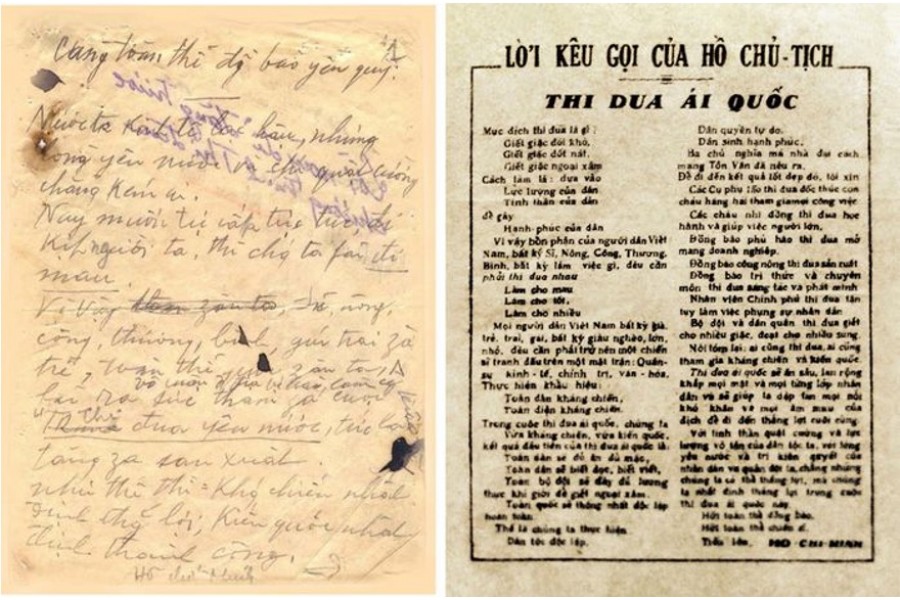 Cùng toàn thể đồng bào yêu quý!
Nước ta kinh tế lạc hậu, nhưng
lòng yêu nước, chí quật cường
chẳng kém ai.
Nay muốn tư cấp tức tốc để
kịp người ta, thì chúng ta fải đi
mau.
Vì vậy sĩ, nông,
công, thương, binh, gái trai zà
trẻ, toàn thể zân ta,
fải ra sức tham za cuộc
Thi đua yêu nước, tức là
tăng za sản xuất.
như thế thì Khg chiến nhất
định thg lợi, Kiến quốc nhất
định thành công.
Hồ Chí Minh
LỜI KÊU GỌI CỦA HỒ CHỦ-TỊCH
THI DUA ÁI QUỐC
Mục đích thi đua là gì :
Giết giặc đói khổ,
Giết giặc dốt nát,
Giết giặc ngoại xâm
Cách làm là : dựa vào
Lực lượng của dân
Tinh thần của dân
để gây
Hạnh-phúc của dân
Vì vậy bổn phận của người dân Việt
Nam, bất kỳ Sĩ, Nông, Công, Thương,
Binh, bất kỳ làm việc gì, đều cần
phải thi đua nhau
Làm cho mau
Làm cho tốt,
Làm cho nhiều
Mọi người dân Việt Nam bất kỳ già,
trẻ, trai, gái, bất kỳ giàu nghèo, lớn,
nhỏ, đều cần phải trở nên một chiến
sĩ tranh đấu trên một mặt trận: Quân-
sự kinh-tế, chính trị, văn-hóa.
Thực hiện khẩu hiệu :
Toàn dân kháng chiến,
Toàn diện kháng chiến.
Trong cuộc thi đua ái quốc, chúng ta
Vừa kháng chiến, vừa kiến quốc,
kết quả đầu tiên của thi đua ái quốc là:
Toàn dân sẽ đủ ăn đủ mặc,
Toàn dân sẽ biết đọc, biết viết,
Toàn bộ đội sẽ đầy đủ lương
thực khí giới để giết ngoại xâm.
Toàn quốc sẽ thống nhất độc lập
hoàn toàn.
Thế là chúng ta thực hiện
Dân tộc độc lập.
Dân quyền tự do.
Dân sinh hạnh phúc.
Ba chủ nghĩa mà nhà đại cách
mạng Tôn Văn đã nêu ra.
Để đi đến kết quả tốt đẹp đó, tôi xin
Các Cụ phụ lão thi đua đốc thúc con
cháu hăng hái tham gia mọi công việc.
Các cháu nhi đồng thi đua học
hành và giúp việc người lớn.
Đồng bào phú hào thi đua mở
mang doanh nghiệp.
Đồng bào công nông thi đua sản xuất
Đồng bào trí thức và chuyên
môn thi đua sáng tác và phát minh
Nhân viên Chính phủ thi đua tận
tụy làm việc phụng sự nhân dân
Bộ đội và dân quân thi đua giết
cho nhiều giặc, đoạt cho nhiều súng.
Nói tóm lại: ai cũng thi đua, ai cũng
tham gia kháng chiến và kiến quốc.
Thi đua ái quốc sẽ ăn sâu, lan rộng
khắp mọi mặt và mọi từng lớp nhân
dân và sẽ giúp ta dẹp tan mọi nỗi
khó khăn và mọi âm mưu của
địch để đi đến thắng lợi cuối cùng.
Với tinh thần quật cường và lực
lượng vô tận của dân tộc ta, với lòng
yêu nước và trí kiên quyết của
nhân dân và quân đội ta, chẳng những
chúng ta có thể thắng lợi, mà chúng
ta nhất định thắng lợi trong cuộc
thi đua ái quốc này
Hỡi toàn thể đồng bào.
Hỡi toàn thể chiến sĩ.
Tiến lên. HO-CHI-MINH